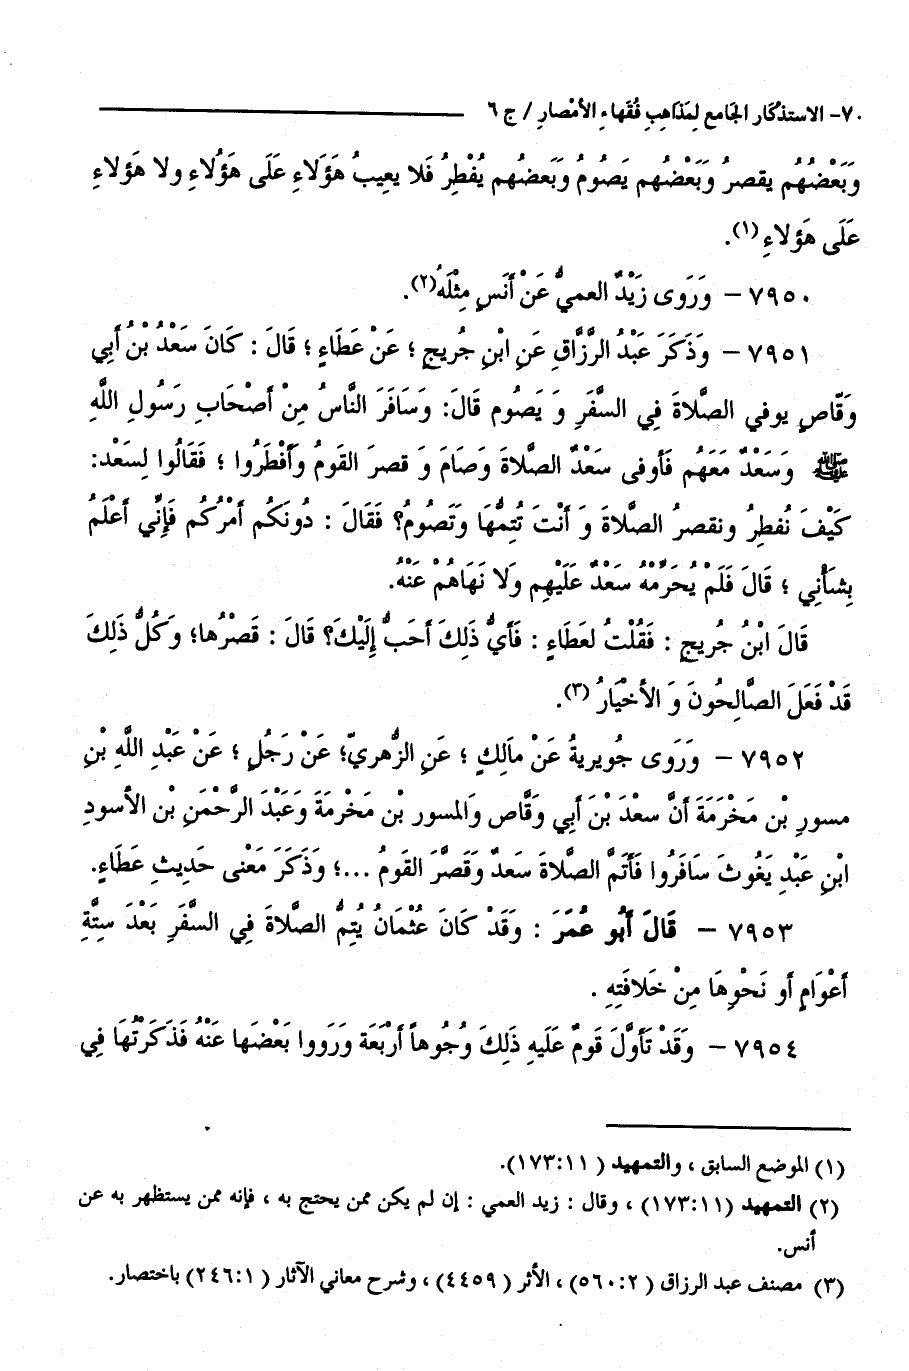 ٧٠- الاستذْكَار الجَامع لِمَذاهِبِ فُقَهاءِ الأمْصارِ / ج ٦
وَبَعْضُهُم يقصرُ وَبَعْضُهم يَصُومُ وَبَعضُهم يُفْطِرُ فَلا يعِيبُ هَؤَلاءِ عَلَى هَؤُلاءِ ولا هَؤلاءِ
عَلَى هَؤلاءِ (١).
٧٩٥٠ – وَرَوى زَيْدٌ العميُّ عَنْ أَنَسٍ مِثْلَهُ(٢).
٧٩٥١ – وَذَكَرَ عَبْدُ الرَّزَّاقِ عَنِ ابْنِ جُريجٍ ؛ عَنْ عَطَاءٍ ؛ قَالَ : كَانَ سَعْدُ بْنُ أَبِي
وَقَّاصٍ يوفي الصَّلاةَ فِي السَّفَرِ وَ يَصُوم قَالَ: وَسَافَرَ النَّاسُ مِنْ أَصْحَابِ رَسُولِ اللَّهِ
ﷺ وَسَعْدٌ مَعَهُم فَأوفى سَعْدٌ الصَّلاةَ وَصَامَ وَ قصرَ القَومُ وَأَفْطَرُوا ؛ فَقَالُوا لِسَعْد:
كَيْفَ نُفطِرُ ونقصرُ الصَّلاةَ وَ أَنْتَ تُتِمُّهَا وَتَصُومُ؟ فَقَالَ : دُونَكُم أَمْرُكُم فَإِنِّي أَعْلَمُ
بِشَأْنِي ؛ قَالَ فَلَمْ يُحَرِّمْهُ سَعْدٌ عَلَيْهِم وَلَا نَهَاهُمْ عَنْهُ.
قَالَ ابْنُ جُريجٍ : فَقُلْتُ لعَطَاءٍ : فَأَيُّ ذَلِكَ أَحَبُّ إِلَيْكَ؟ قَالَ : قَصْرُها؛ وَكُلُّ ذَلِكَ
قَدْ فَعَلَ الصَّالِحُونَ وَ الأخْيَارُ (٣).
٧٩٥٢ – وَرَوى جُويريةُ عَنْ مَالِكٍ ؛ عَنِ الزُّهريِّ؛ عَنْ رَجُلٍ ؛ عَنْ عَبْدِ اللَّهِ بْنِ
مسورِ بْنِ مَخْرَمَةَ أَنَّ سعْدَ بْنَ أَبِي وَقَّاصٍ وَالمسور بْن مَخْرمَةَ وَعَبْدَ الرَّحْمَنِ بْن الأسودِ
ابْنِ عَبْدِ يَغُوثَ سَافَرُوا فَأَتَمَّ الصَّلاةَ سَعدٌ وَقَصَّرَ القَومُ ...؛ وَذَكَرَ مَعْنى حَدِيثِ عَطَاءٍ.
٧٩٥٣ – قَالَ أَبُو عُمَرَ : وَقَدْ كَانَ عُثْمَانُ يُتِمُّ الصَّلاةَ فِي السَّفَرِ بَعْدَ سِتَّةِ
أَعْوَامٍ أَو نَحْوِهَا مِنْ خَلافَتِهِ .
٧٩٥٤ – وَقَدْ تَأَوَّلَ قَومٌ عَلَيهِ ذَلِكَ وُجُوهاً أَرْبَعَة وَرَووا بَعْضَها عَنْهُ فَذكَرْتُهَا فِي
(١) الموضع السابق ، والتمهيد ( ١١:١٧٣).
(٢) التمهيد (١١:١٧٣) ، وقال : زيد العمي : إن لم يكن ممن يحتج به ، فإنه ممن يستظهر به عن
أنس.
(٣) مصنف عبد الرزاق (٢:٥٦٠) ، الأثر (٤٤٥٩) ، وشرح معاني الآثار (١:٢٤٦) باختصار.